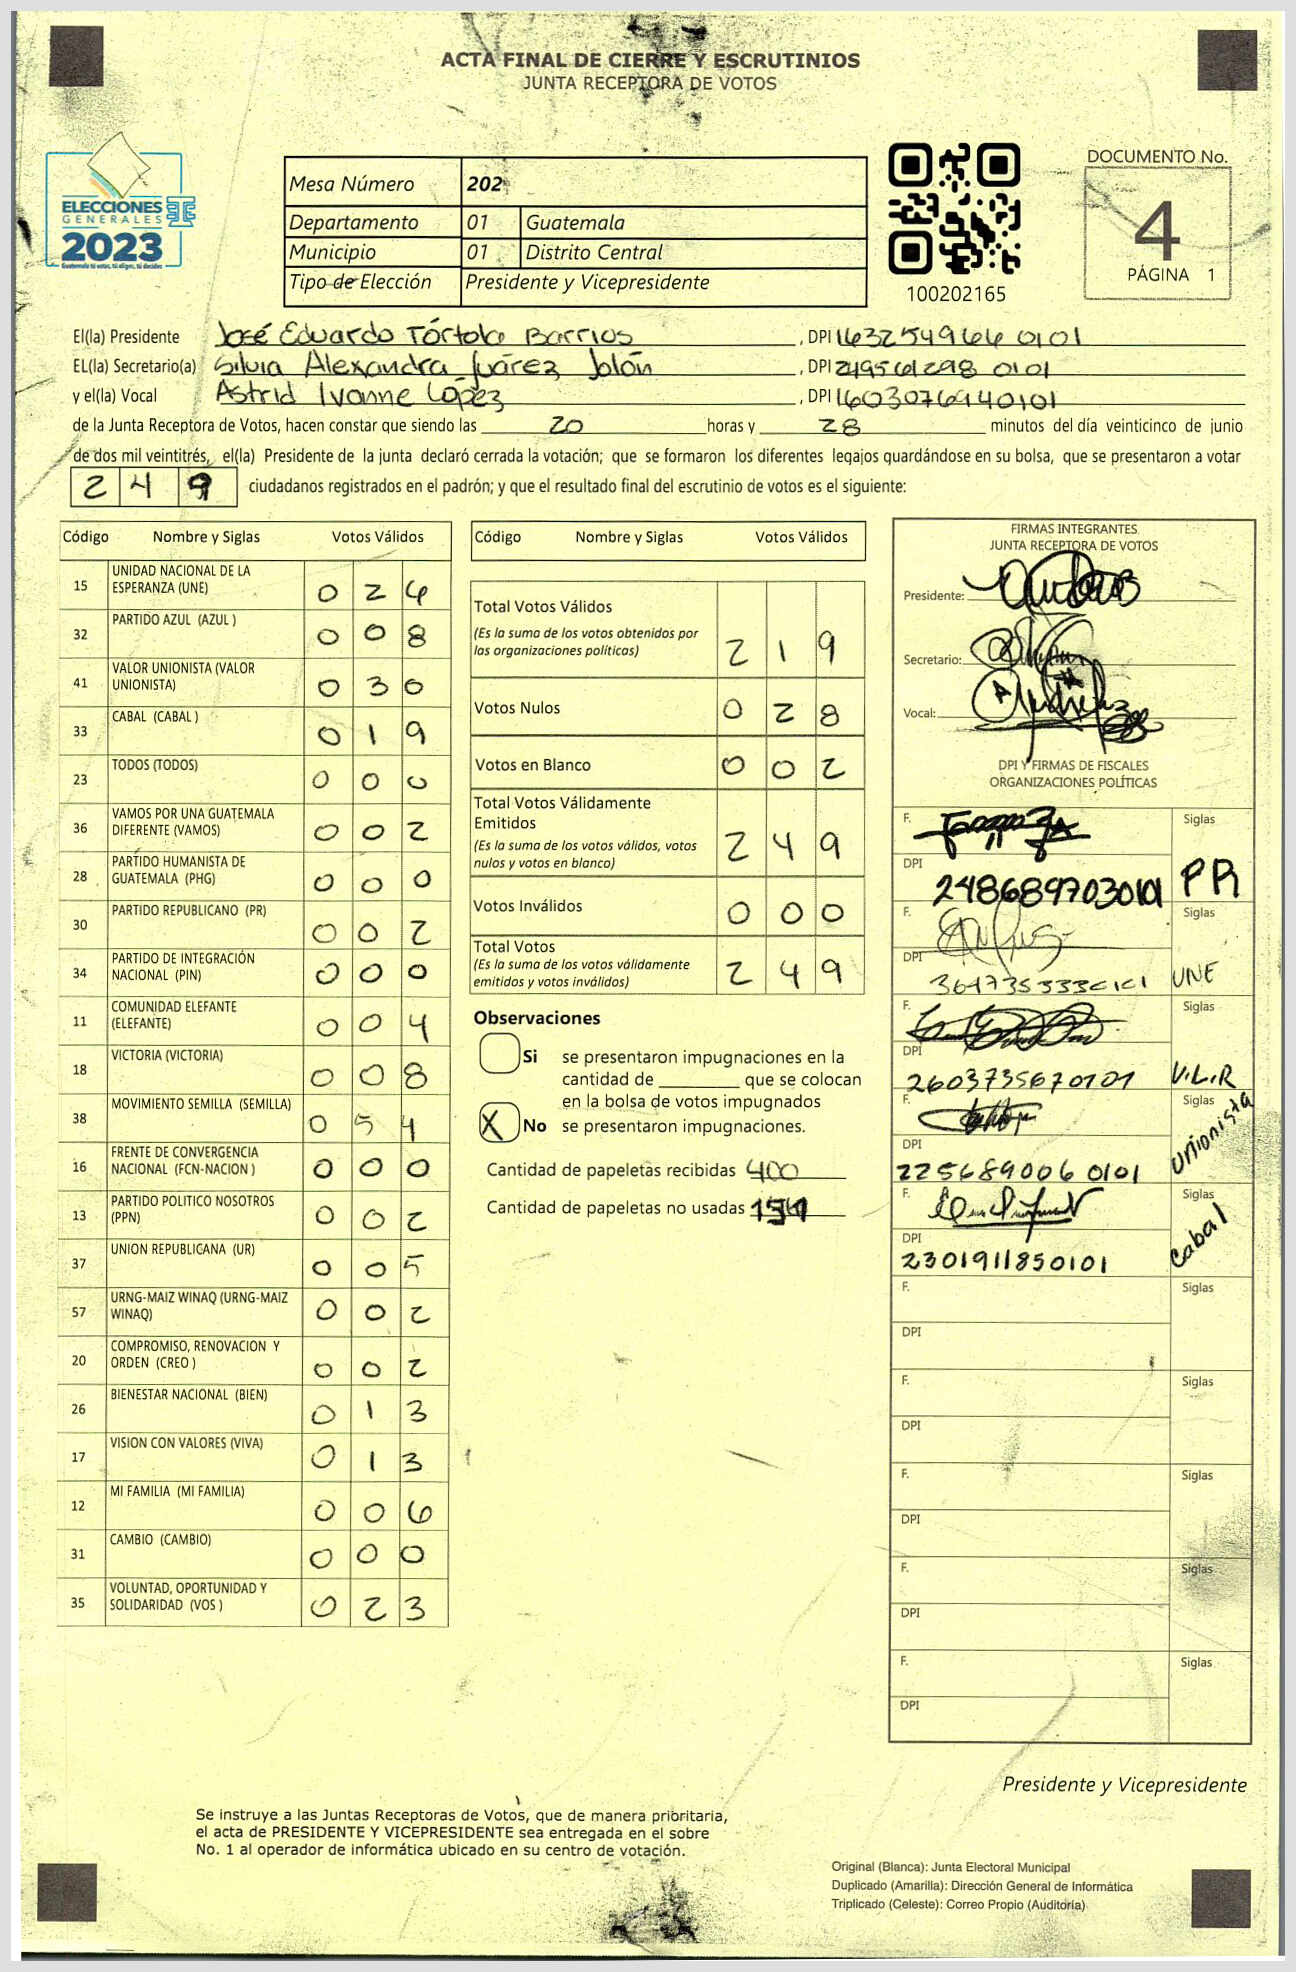 ACTA FINAL DE CIERRE Y ESCRUTINIOS
JUNTA RECEPTORA DE VOTOS
ELECCIONES
GENERALES
2023
Guatemala tú votas, tú eliges, tú decides
Mesa Número 202
Departamento 01 Guatemala
Municipio 01 Distrito Central
Tipo de Elección Presidente y Vicepresidente
100202165
DOCUMENTO No.
4
PÁGINA 1
El(la) Presidente José Eduardo Tórtola Barrios, DPI 1632549664 0101
EL(la) Secretario(a) Silvia Alexandra Juárez Jolón, DPI 249561298 0101
y el(la) Vocal Astrid Ivonne López, DPI 1603076940101
de la Junta Receptora de Votos, hacen constar que siendo las 20 horas y 28 minutos del día veinticinco de junio
de dos mil veintitrés, el(la) Presidente de la junta declaró cerrada la votación; que se formaron los diferentes legajos guardándose en su bolsa, que se presentaron a votar
249 ciudadanos registrados en el padrón; y que el resultado final del escrutinio de votos es el siguiente:
Código Nombre y Siglas Votos Válidos
15 UNIDAD NACIONAL DE LA ESPERANZA (UNE) 0 2 6
32 PARTIDO AZUL (AZUL ) 0 0 8
41 VALOR UNIONISTA (VALOR UNIONISTA) 0 3 0
33 CABAL (CABAL ) 0 1 9
23 TODOS (TODOS) 0 0 0
36 VAMOS POR UNA GUATEMALA DIFERENTE (VAMOS) 0 0 2
28 PARTIDO HUMANISTA DE GUATEMALA (PHG) 0 0 0
30 PARTIDO REPUBLICANO (PR) 0 0 2
34 PARTIDO DE INTEGRACIÓN NACIONAL (PIN) 0 0 0
11 COMUNIDAD ELEFANTE (ELEFANTE) 0 0 4
18 VICTORIA (VICTORIA) 0 0 8
38 MOVIMIENTO SEMILLA (SEMILLA) 0 5 4
16 FRENTE DE CONVERGENCIA NACIONAL (FCN-NACION ) 0 0 0
13 PARTIDO POLITICO NOSOTROS (PPN) 0 0 2
37 UNION REPUBLICANA (UR) 0 0 5
57 URNG-MAIZ WINAQ (URNG-MAIZ WINAQ) 0 0 2
20 COMPROMISO, RENOVACION Y ORDEN (CREO ) 0 0 2
26 BIENESTAR NACIONAL (BIEN) 0 1 3
17 VISION CON VALORES (VIVA) 0 1 3
12 MI FAMILIA (MI FAMILIA) 0 0 6
31 CAMBIO (CAMBIO) 0 0 0
35 VOLUNTAD, OPORTUNIDAD Y SOLIDARIDAD (VOS ) 0 2 3
Código Nombre y Siglas Votos Válidos
Total Votos Válidos 2 1 9
(Es la suma de los votos obtenidos por
las organizaciones políticas)
Votos Nulos 0 2 8
Votos en Blanco 0 0 2
Total Votos Válidamente
Emitidos 2 4 9
(Es la suma de los votos válidos, votos
nulos y votos en blanco)
Votos Inválidos 0 0 0
Total Votos 2 4 9
(Es la suma de los votos válidamente
emitidos y votos inválidos)
Observaciones
Si se presentaron impugnaciones en la
cantidad de ________ que se colocan
en la bolsa de votos impugnados
X No se presentaron impugnaciones.
Cantidad de papeletas recibidas 400
Cantidad de papeletas no usadas
FIRMAS INTEGRANTES
JUNTA RECEPTORA DE VOTOS
Presidente:
Secretario:
Vocal:
DPI Y FIRMAS DE FISCALES
ORGANIZACIONES POLÍTICAS
F. Siglas
DPI 2486897030101 PR
F. Siglas
DPI UNE
F. Siglas
DPI 2603735670101 V.L.R
F. Siglas
DPI 225689006 0101 Unionista
F. Siglas
DPI 2301911850101 Cabal
F. Siglas
DPI
F. Siglas
DPI
F. Siglas
DPI
F. Siglas
DPI
F. Siglas
DPI
Presidente y Vicepresidente
Se instruye a las Juntas Receptoras de Votos, que de manera prioritaria,
el acta de PRESIDENTE Y VICEPRESIDENTE sea entregada en el sobre
No. 1 al operador de informática ubicado en su centro de votación.
Original (Blanca): Junta Electoral Municipal
Duplicado (Amarilla): Dirección General de Informática
Triplicado (Celeste): Correo Propio (Auditoría)